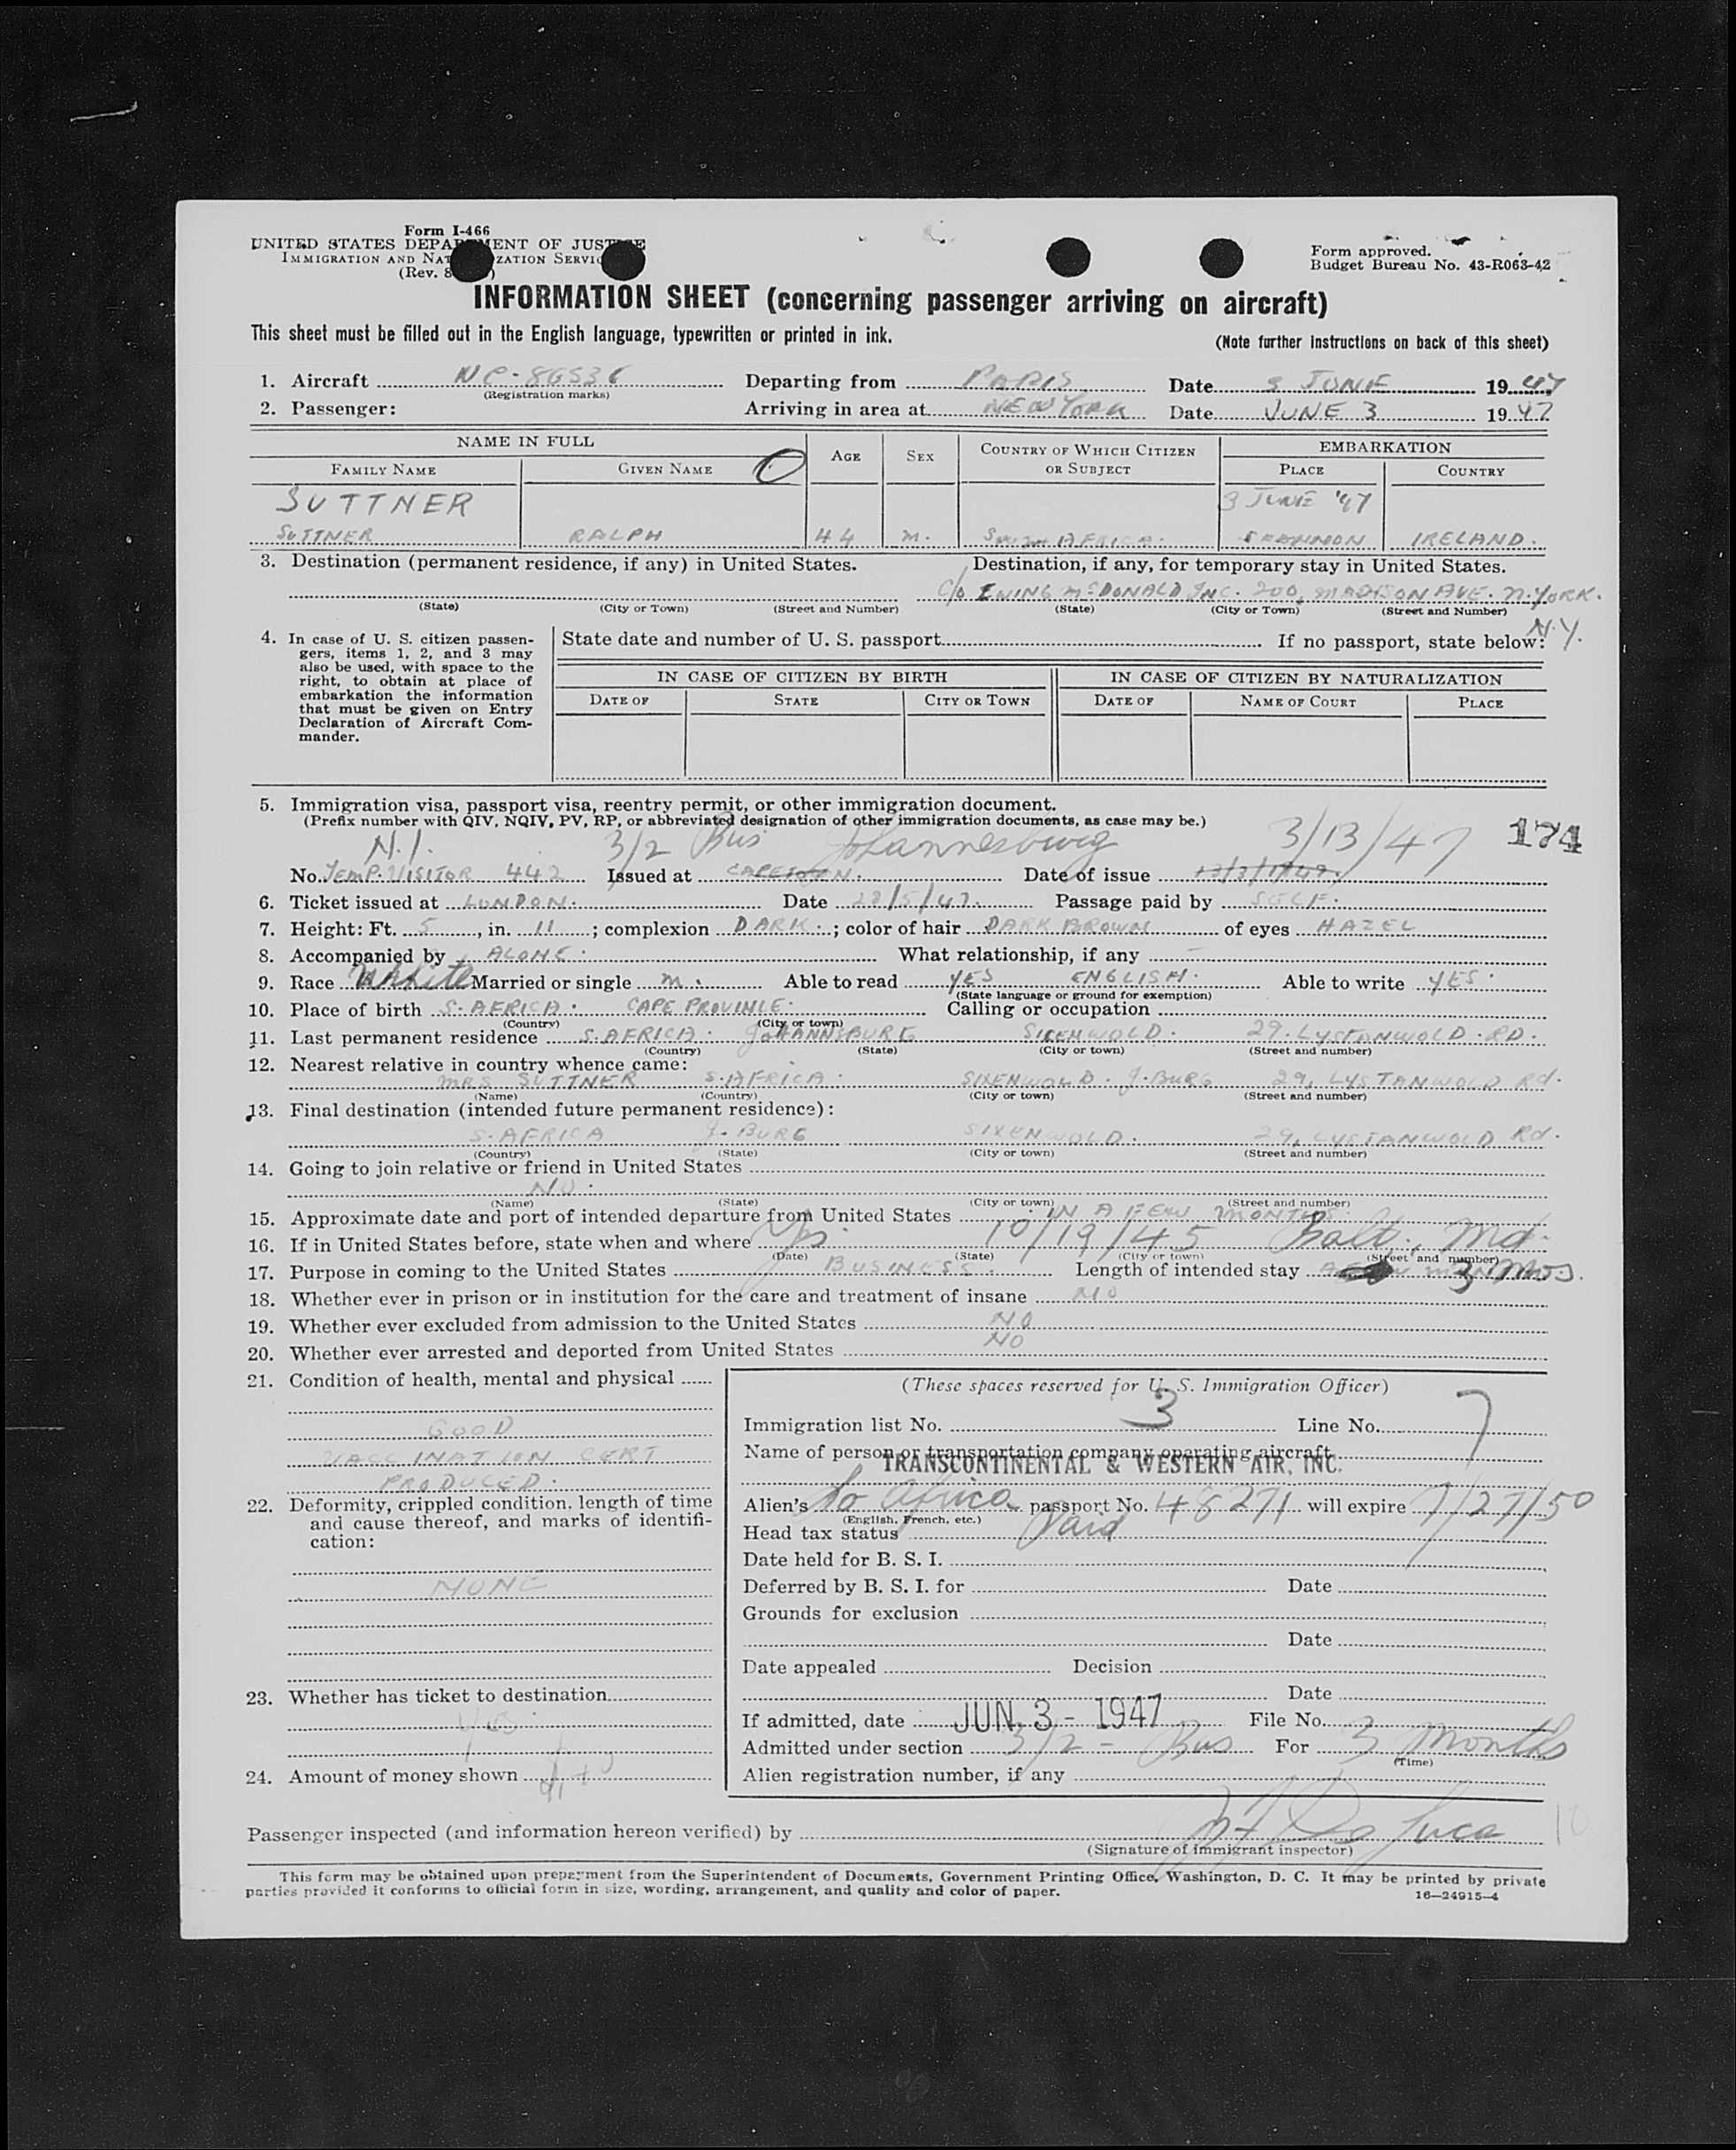 Form I-466
UNITED STATES DEPARTMENT OF JUSTICE
IMMIGRATION AND NATURALIZATION SERVICE
(Rev. 8
Form approved.
Budget Bureau No. 43-R063-42
INFORMATION SHEET (concerning passenger arriving on aircraft)
This sheet must be filled out in the English language, typewritten or printed in ink.
(Note further instructions on back of this sheet)
1. Aircraft NC-86536 Departing from PARIS Date 3 JUNE 1947
(Registration marks)
2. Passenger: Arriving in area at NEW YORK Date JUNE 3 1947
NAME IN FULL AGE SEX COUNTRY OF WHICH CITIZEN OR SUBJECT EMBARKATION
FAMILY NAME GIVEN NAME PLACE COUNTRY
SUTTNER 3 JUNE '47
SUTTNER RALPH 44 M. SOUTH AFRICA. SHANNON IRELAND.
3. Destination (permanent residence, if any) in United States. Destination, if any, for temporary stay in United States.
C/o EWING McDONALD INC. 200, MADISON AVE. N.YORK.
(State) (City or Town) (Street and Number) (State) (City or Town) (Street and Number)
N.Y.
4. In case of U. S. citizen passengers, items 1, 2, and 3 may also be used, with space to the right, to obtain at place of embarkation the information that must be given on Entry Declaration of Aircraft Commander.
State date and number of U. S. passport If no passport, state below:
IN CASE OF CITIZEN BY BIRTH IN CASE OF CITIZEN BY NATURALIZATION
DATE OF STATE CITY OR TOWN DATE OF NAME OF COURT PLACE
5. Immigration visa, passport visa, reentry permit, or other immigration document.
(Prefix number with QIV, NQIV, PV, RP, or abbreviated designation of other immigration documents, as case may be.)
N.I. 3/2 Bus Johannesburg 3/13/47 174
No. TEMP. VISITOR 442 Issued at CAPETOWN. Date of issue 13/3/1947.
6. Ticket issued at LONDON. Date 28/5/47. Passage paid by SELF.
7. Height: Ft. 5, in. 11; complexion DARK.; color of hair DARK BROWN of eyes HAZEL
8. Accompanied by ALONE. What relationship, if any -
9. Race White Married or single M. Able to read YES ENGLISH. Able to write YES.
(State language or ground for exemption)
10. Place of birth S. AFRICA. CAPE PROVINCE. Calling or occupation
(Country) (City or town)
11. Last permanent residence S. AFRICA. JOHANNSBURG SIXENWOLD. 29. LYSTANWOLD. RD.
(Country) (State) (City or town) (Street and number)
12. Nearest relative in country whence came:
MRS SUTTNER S. AFRICA. SIXENWOLD. J.BURG 29, LYSTANWOLD Rd.
(Name) (Country) (City or town) (Street and number)
13. Final destination (intended future permanent residence):
S. AFRICA J. BURG SIXENWOLD. 29, LYSTANWOLD Rd.
(Country) (State) (City or town) (Street and number)
14. Going to join relative or friend in United States
NO.
(Name) (State) (City or town) (Street and number)
15. Approximate date and port of intended departure from United States IN A FEW MONTHS.
16. If in United States before, state when and where Yes. 10/19/45 Balt., Md.
(Date) (State) (City or town) (Street and number)
17. Purpose in coming to the United States BUSINESS. Length of intended stay 3 Mos.
18. Whether ever in prison or in institution for the care and treatment of insane NO
19. Whether ever excluded from admission to the United States NO
20. Whether ever arrested and deported from United States NO
21. Condition of health, mental and physical
GOOD
VACCINATION CERT
PRODUCED.
22. Deformity, crippled condition, length of time and cause thereof, and marks of identification:
NONE
23. Whether has ticket to destination
Yes
24. Amount of money shown
(These spaces reserved for U. S. Immigration Officer)
Immigration list No. 3 Line No. 7
Name of person or transportation company operating aircraft
TRANSCONTINENTAL & WESTERN AIR, INC.
Alien's So Africa passport No. 48271 will expire 7/27/50
(English, French, etc.)
Head tax status Paid
Date held for B. S. I.
Deferred by B. S. I. for Date
Grounds for exclusion
Date
Date appealed Decision
Date
If admitted, date JUN 3 - 1947 File No.
Admitted under section 3/2 - Bus For 3 Months
(Time)
Alien registration number, if any
Passenger inspected (and information hereon verified) by De Luca 10
(Signature of immigrant inspector)
This form may be obtained upon prepayment from the Superintendent of Documents, Government Printing Office, Washington, D. C. It may be printed by private
parties provided it conforms to official form in size, wording, arrangement, and quality and color of paper.
16—24915-4